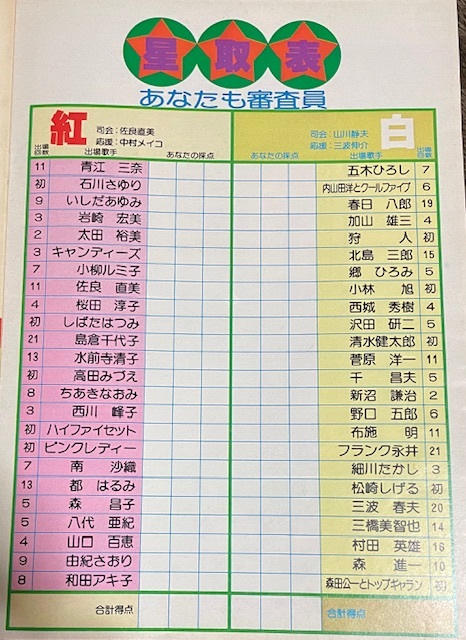 星取表
あなたも審査員
紅 司会:佐良直美 司会:山川静夫 白
応援:中村メイコ 応援:三波伸介
出場回数 出場歌手 あなたの採点 あなたの採点 出場歌手 出場回数
11 青江 三奈 五木ひろし 7
初 石川さゆり 内山田洋とクールファイブ 6
9 いしだあゆみ 春日 八郎 19
3 岩崎 宏美 加山 雄三 4
2 太田 裕美 狩人 初
3 キャンディーズ 北島 三郎 15
7 小柳ルミ子 郷 ひろみ 5
11 佐良 直美 小林 旭 初
4 桜田 淳子 西城 秀樹 4
初 しばたはつみ 沢田 研二 5
21 島倉千代子 清水健太郎 初
13 水前寺清子 菅原 洋一 11
初 高田みづえ 千 昌夫 5
8 ちあきなおみ 新沼 謙治 2
3 西川 峰子 野口 五郎 6
初 ハイファイセット 布施 明 11
初 ピンクレディー フランク永井 21
7 南 沙織 細川たかし 3
13 都 はるみ 松崎しげる 初
5 森 昌子 三波 春夫 20
5 八代 亜紀 三橋美智也 14
4 山口 百恵 村田 英雄 16
9 由紀さおり 森 進一 10
8 和田アキ子 森田公一とトップギャラン 初
合計得点 合計得点